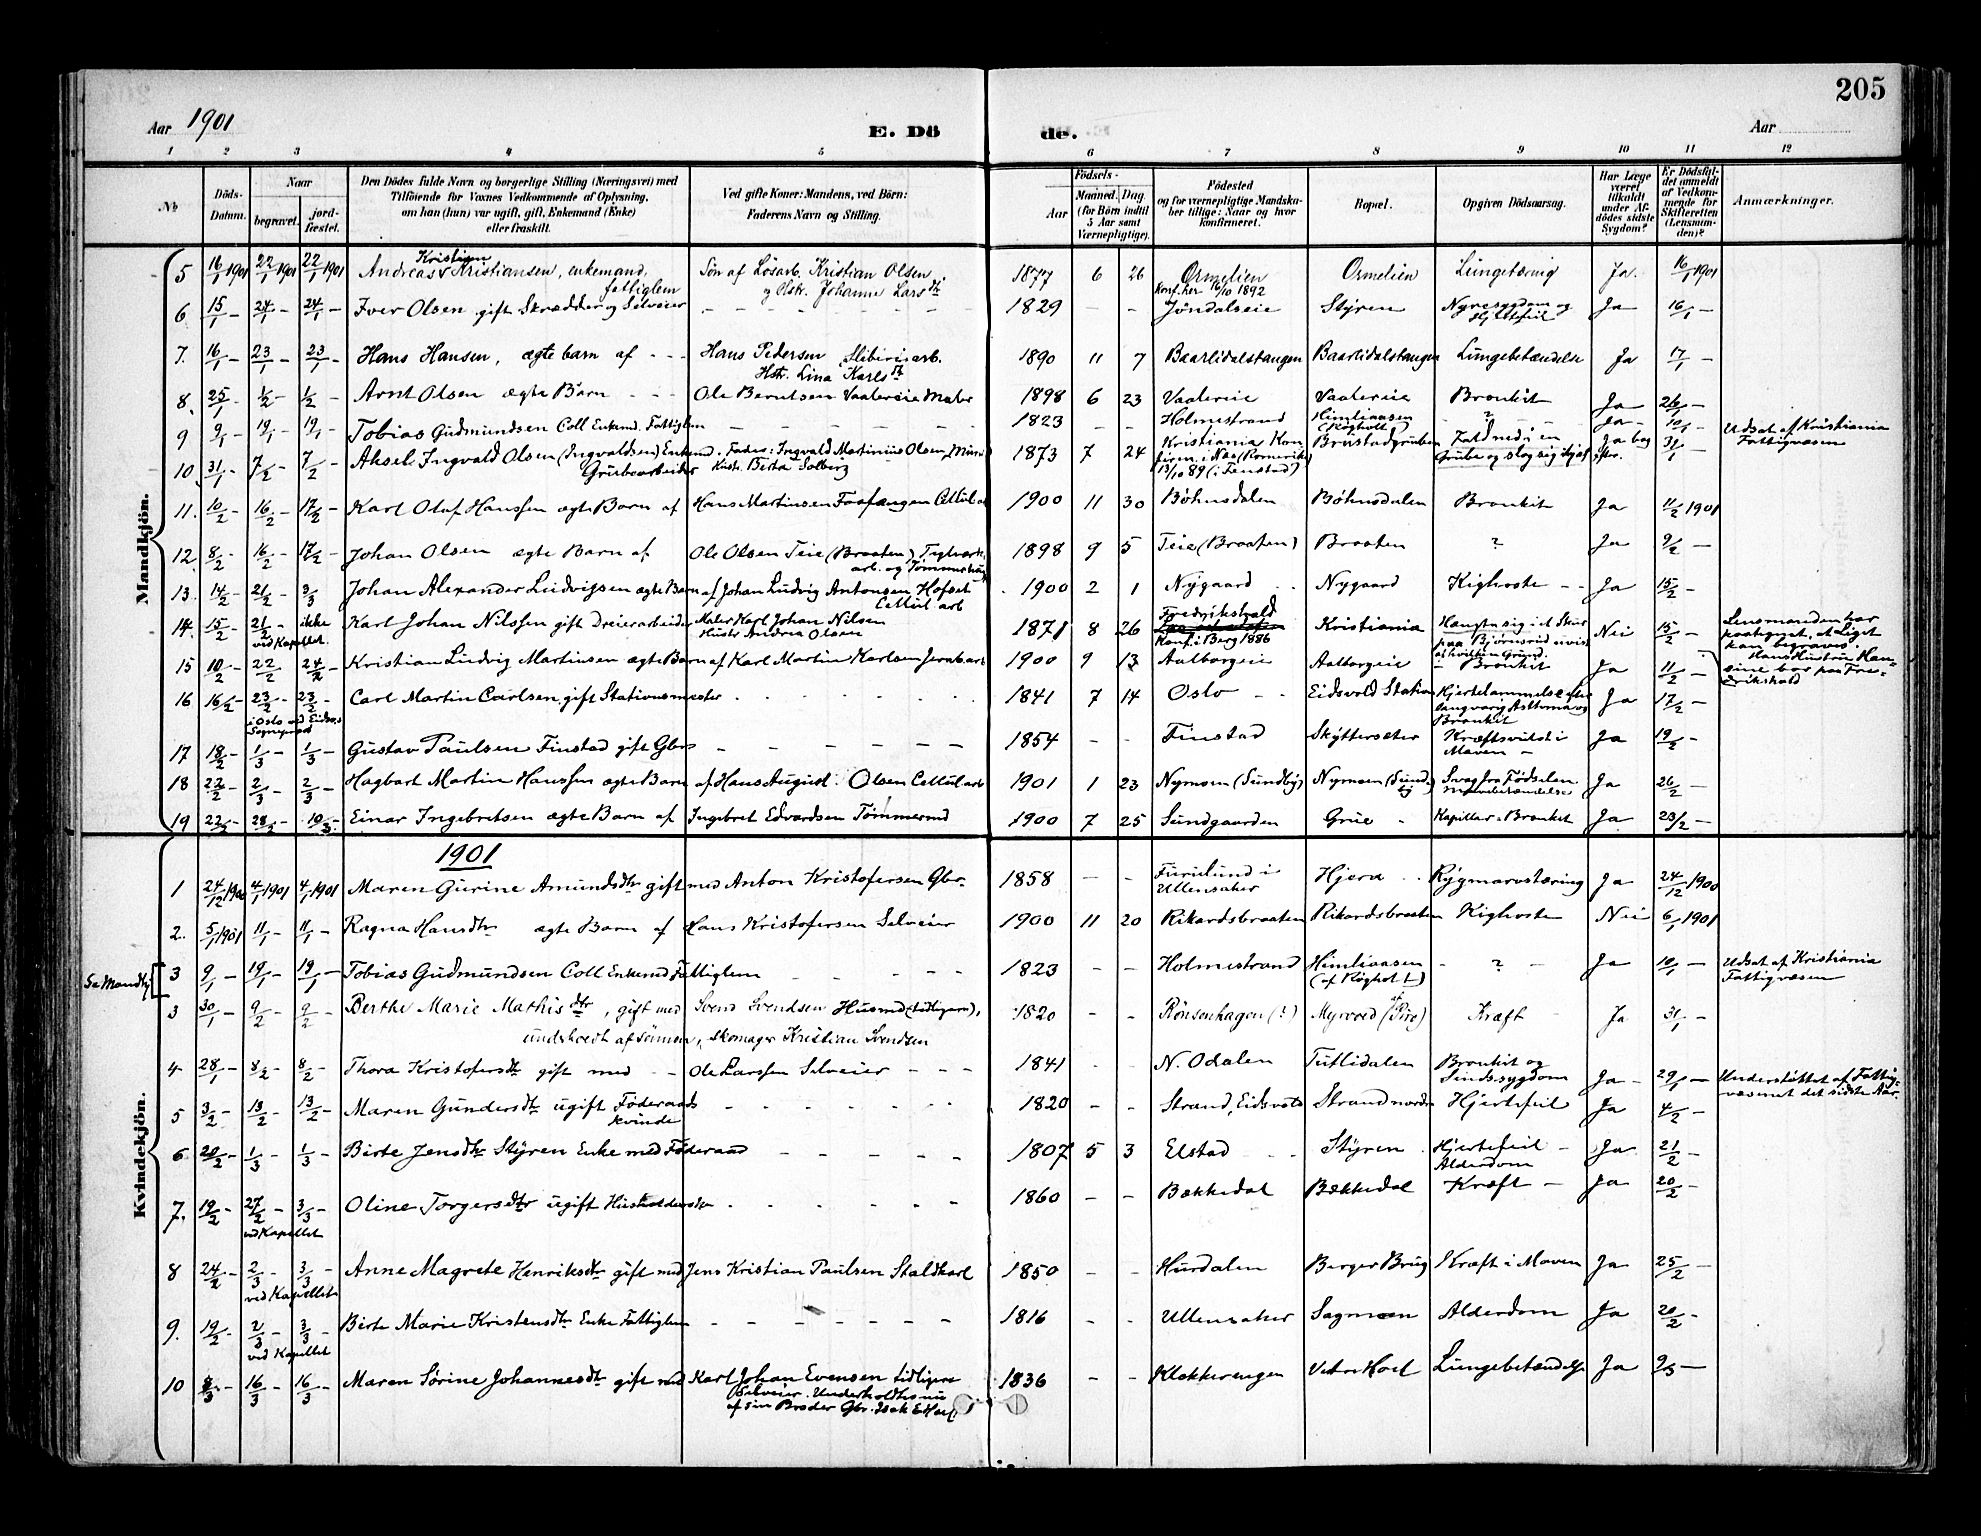 205
Aar 1901
E. Dö
de.
Aar
1 2 3 4 5 6 7 8 9 10 11 12
No
Döds-Datum.
Naar
begravet.
jord-fæstet.
Den Dödes fulde Navn og borgerlige Stilling (Næringsvei) med
Tilföiende for Voxnes Vedkommende af Oplysning,
om han (hun) var ugift, gift, Enkemand (Enke)
eller fraskilt.
Ved gifte Koner: Mandens, ved Börn:
Faderens Navn og Stilling.
Födsels-
Aar
Maaned. Dag.
(for Börn indtil
5 Aar samt
Værnepligtige).
Födested
og for værnepligtige Mandska-
ber tillige: Naar og hvor
konfirmeret.
Bopæl.
Opgiven Dödsaarsag.
Har Læge
været
tilkaldt
under Af-
dödes sidste
Sygdom?
Er Dödsfal-
det anmeldt
af Vedkom-
mende for
Skifteretten
(Lensman-
den)?
Anmærkninger.
Mandkjön.
5 16/1 1901 22/1 1901 22/1 1901 Andreas Kristian Kristiansen, enkemand, fattiglem Søn af Løsarb. Kristian Olsen og Hstr. Johanne Larsdtr 1877 6 26 Ormelien Konf. her 16/10 1892 Ormelien Lungetæring Ja. 16/1 1901
6 15/1 – 24/1 – 24/1 – Iver Olsen gift Skrædder og Selveier – – – 1829 – – Jøndalseie Styren Nyresygdom og Hjertefeil Ja 16/1 –
7. 16/1 – 23/1 – 23/1 – Hans Hansen, ægte barn af - - - Hans Pedersen Sliberiarb. Hstr. Lina Karlsdt 1890 11 7 Baarlidalstangen Baarlidalstangen Lungebetændelse Ja 17/1 –
8. 25/1 – 1/2 – 1/2 – Arnt Olsen ægte Barn - - - Ole Berntsen Vaalereie Maler 1898 6 23 Vaalereie Vaalereie Bronkit Ja 26/1 –
9 9/1 – 19/1 – 19/1 – Tobias Gudmundsen Coll Enkemd. Fattiglem – – – 1823 – – Holmestrand Himliaasen (Røgholt) ? Ja – 10/1 – Udsat af Kristiania Fattigvæsen
10. 31/1 – 7/2 – 7/2 – Aksel Ingvald Olsen (Ingvaldsen) Enkemd. Grubearbeider Fader: Ingvald Martinius Olsen Hstr. Berta Solberg 1873 7 24 Kristiania Konfirm. i Næs (Romerike) 13/10 89 (i Fenstad) Brustadgruben Fald ned i en Grube og slog sig ihjel Ja bag efter. 31/1 –
11. 10/2 – 16/2 – 17/2 – Karl Olaf Hanssen ægte Barn af Hans Martinsen Fosfangen Cellul. arb 1900 11 30 Bøhnsdalen Bøhnsdalen Bronkit Ja 11/2 1901
12. 8/2 – 16/2 – 17/2 – Johan Olsen ægte Barn af Ole Olsen Teie (Braaten) Teglværksarb. og Tømmerhug 1898 9 5 Teie (Braaten) Braaten ? Ja 9/2 –
13. 14/2 – 21/2 – 3/3 Johan Alexander Ludvigssen ægte Barn af Johan Ludvig Antonsen Hofset Cellul. arb 1900 2 1 Nygaard Nygaard Kighoste - - Ja 15/2 –
14. 15/2 – 21/2 – ved Kapellet ikke Karl Johan Nilssen gift Dreierarbeider Maler Karl Johan Nilsen Hustr. Andrea Olsen 1871 8 26 Fredrikshald Konf. i Berg 1886 Kristiania Hængte sig i et Skur paa Bjørnsrud uvist af hvilken Grund. Nei 15/2 – Lensmanden har paategnet, at Liget kan begraves. Hans Hustru Hansine bor paa Fredrikshald
15 10/2 – 22/2 – 24/2 – Kristian Ludvig Martinsen ægte Barn af Karl Martin Karlsen Jernb.arb 1900 9 13 Aalborgeie Aalborgeie Bronkit Ja 11/2 –
16 16/2 – 23/2 – 23/2 – i Oslo ved Eidsv.s Sogneprest Carl Martin Carlsen gift Stationsmester 1841 7 14 Oslo - - Eidsvold Station Hjertelammelse efter langvarig Asthma og Bronkit Ja 17/2 –
17 18/2 – 1/3 – 1/3 – Gustav Paulsen Finstad gift Gbr. – – – 1854 – – Finstad Skytterseter Kræftsvulst i Maven – Ja 19/2 –
18 22/2 – 2/3 – 2/3 – Hagbart Martin Hanssen ægte Barn af Hans August Olsen Cellul. arb 1901 1 23 Nymoen (Sundby) Nymoen (Sundby) Svag fra Fødselen Mavebetændelse Ja 26/2 –
19 22/2 – 28/2 – 10/3 – Einar Ingebretsen ægte Barn af Ingebret Edvardsen Tømmermd 1900 7 25 Sundgaarden Grue - Kapillær-Bronkit Ja 23/2 –
1901
Kvindekjön.
1 24/12 1900 4/1 1901 4/1 1901 Maren Gurine Amundsdtr gift med Anton Kristofersen Gbr. 1858 – – Furulund i Ullensaker Hjera Rygmarvstæring Ja 24/12 1900
2. 5/1 1901 11/1 – 11/1 – Ragna Hansdtr ægte Barn af Hans Kristofersen Selveier 1900 11 20 Rikardsbraaten Rikardsbraaten Kighoste Nei 6/1 1901
Se Mandkj. 3 9/1 – 19/1 – 19/1 – Tobias Gudmundsen Coll Enkemd Fattiglem – – – 1823 – – Holmestrand Himliaasen (af Røgholt) – ? – Ja 10/1 – Udsat af Kristiania Fattigvæsen
3 30/1 – 9/2 – 9/2 – Berthe Marie Mathisdtr, gift med Svend Svendsen Husmd (tidligere), understøedt af Sønnen, Skomager Kristian Svendsen 1820 – – Rönsenhagen (?) Myrvord Kræft Ja 31/1 –
4 28/1 – 8/2 – 8/2 – Thora Kristofersdtr gift med - - Ole Larssen Selveier - - - 1841 N. Odalen Tutlidalen Bronkit og Sindssygdom Ja – 29/1 – Understøttet af Fattigvæsenet det sidste Aar.
5 3/2 – 13/2 – 13/2 – Maren Gundersdtr ugift Føderaads kvinde 1820 – – Strand, Eidsvold Strand nordre Hjertefeil Ja 4/2 –
6 20/2 – 1/3 – 1/3 – Birte Jensdtr Styren Enke med Føderaad – – – 1807 5 3 Elstad Styren Hjertefeil – Alderdom Ja 21/2 –
7. 19/2 – 27/2 – ved Kapellet 3/3 – Oline Torgersdtr ugift Husholderske 1860 – – Bækkedal Bækkedal Kræft – Ja 20/2 –
8 24/2 – 2/3 – ved Kapellet 3/3 – Anne Magrete Henriksdtr gift med Jens Kristian Paulsen Staldkarl 1850 – – Hurdalen Berger Brug Kræft i Maven Ja 25/2 –
9. 19/2 – 2/3 – ved Kapellet 3/3 – Birte Marie Kristensdtr Enke Fattiglem – – – 1816 – – Ullensaker Sagmoen Alderdom Ja 20/2 –
10 8/3 – 16/3 16/3 – Maren Sørine Johannesdtr gift med Karl Johan Evensen tidligere Selveier. Underholdtes nu af sin Broder Gbr. Isak 1836 – – Klokkerengen Vestre Hol Lungebetændelse Ja 9/3 –